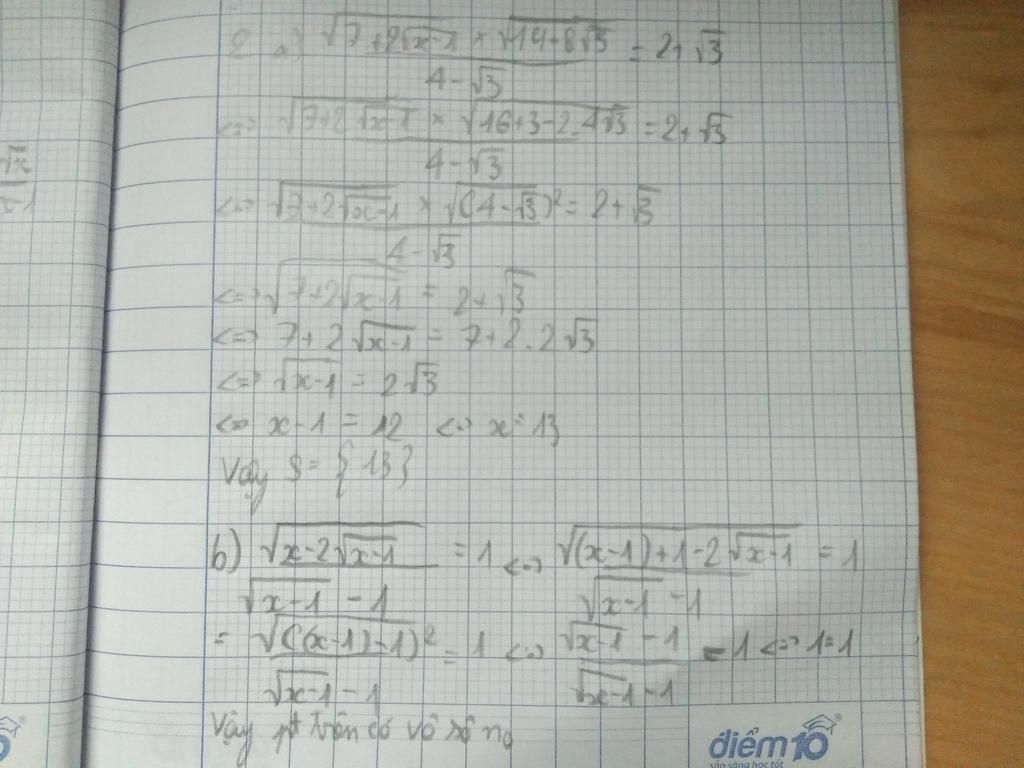 2 a) √(7+2√(x-1)) × √(19-8√3) / (4-√3) = 2+√3
<=> √(7+2√(x-1)) × √(16+3-2.4√3) / (4-√3) = 2+√3
<=> √(7+2√(x-1)) × √(4-√3)² / (4-√3) = 2+√3
<=> √(7+2√(x-1)) = 2+√3
<=> 7+2√(x-1) = 7+2.2√3
<=> √(x-1) = 2√3
<=> x-1 = 12 <=> x = 13
Vậy S = {13}
b) √(x-2√(x-1)) / (√(x-1) -1) = 1 <=> √((x-1)+1-2√(x-1)) / (√(x-1) -1) = 1
= √((x-1)-1)² / (√(x-1) -1) = 1 <=> (√(x-1) -1) / (√(x-1) -1) = 1 <=> 1=1
Vậy pt trên có vô số no
điểm 10
sẵn sàng học tốt